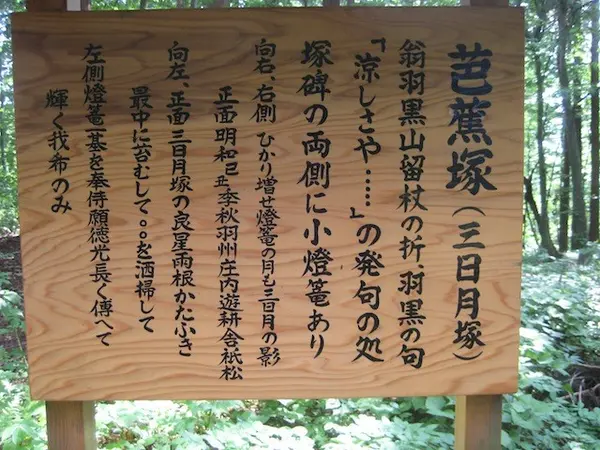 芭蕉塚(三日月塚)
翁羽黒山留杖の折羽黒の句
「涼しさや……」の発句の処
塚碑の両側に小燈篭あり
向右、右側 ひかり増せ燈篭の月も三日月の影
正面明和己丑季秋羽州庄内遊耕舎祇松
向左、正面三日月塚の良星雨根かたふき
最中に苔むして。。を洒掃して
左側燈篭一基を奉侍願徳光長く傳へて
輝く我布のみ